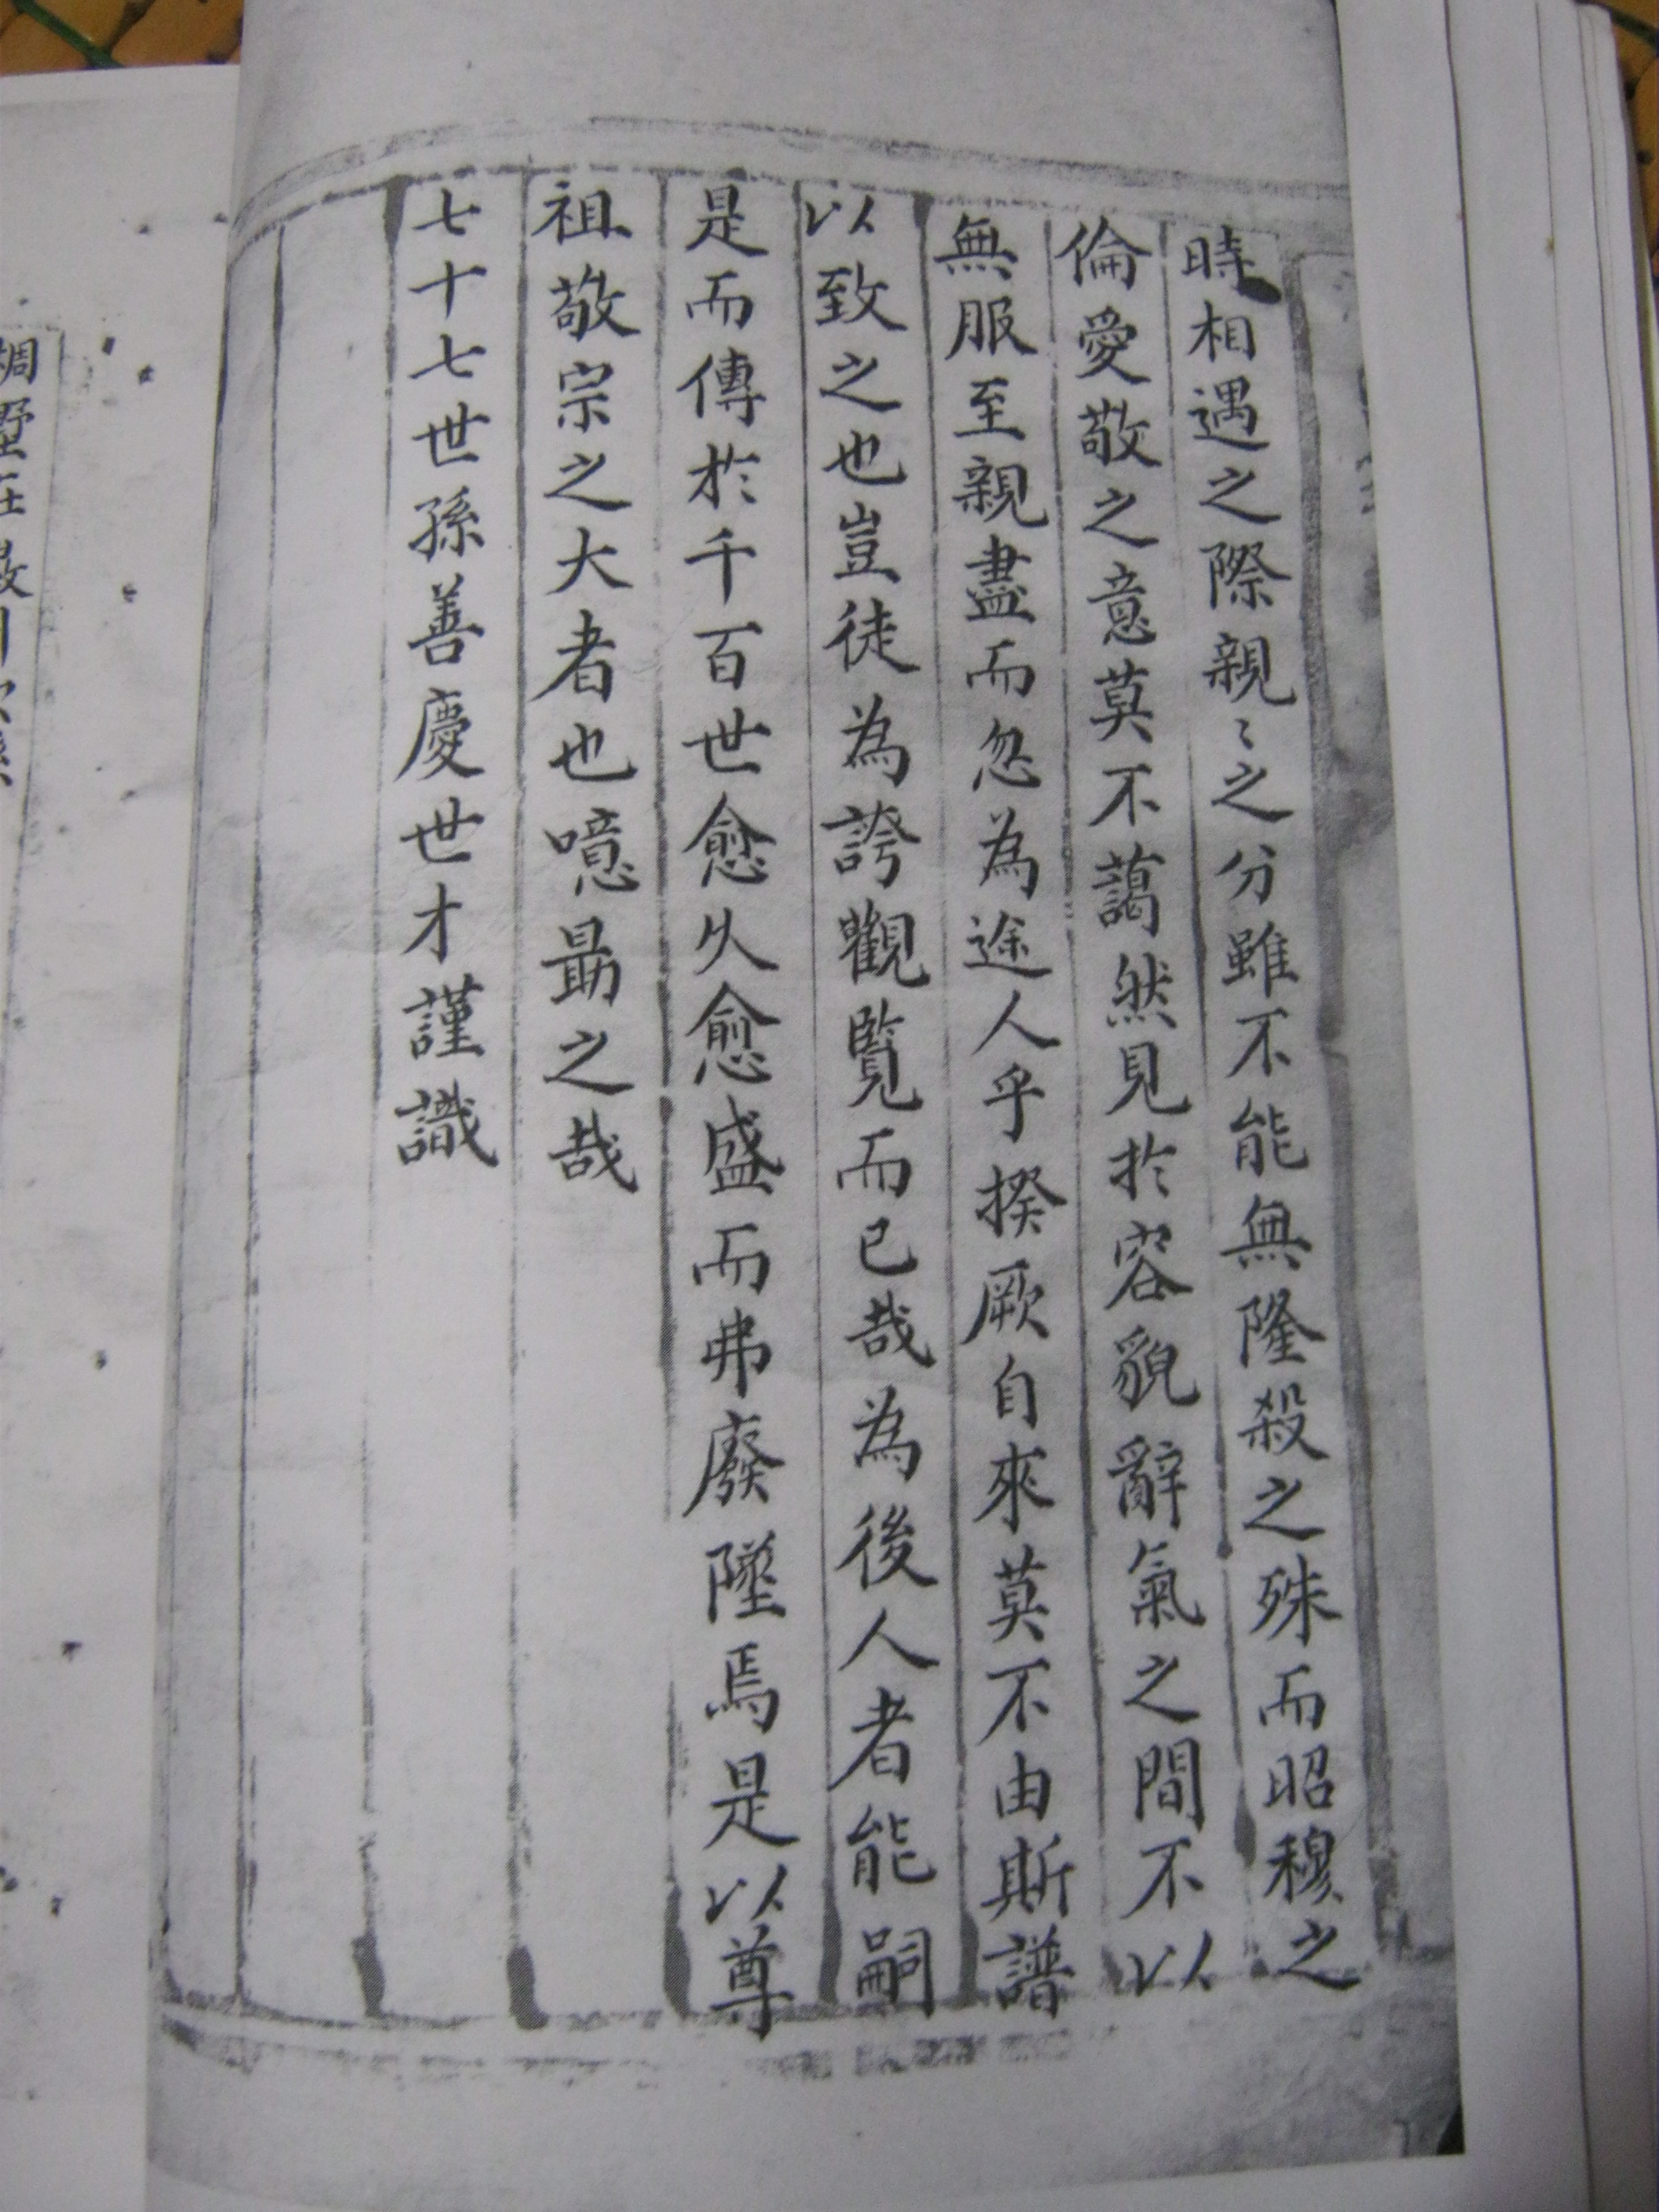 時相遇之際親〻之分雖不能無隆殺之殊而昭穆之
倫愛敬之意莫不藹然見扵容貌辭氣之間不以
無服至親盡而忽為途人乎揆厥自來莫不由斯譜
以致之也豈徒為誇觀覽而已哉為後人者能嗣
是而傳扵千百世愈久愈盛而弗廢墜焉是以尊
祖敬宗之大者也噫勗之哉
七十七世孫善慶世才謹識